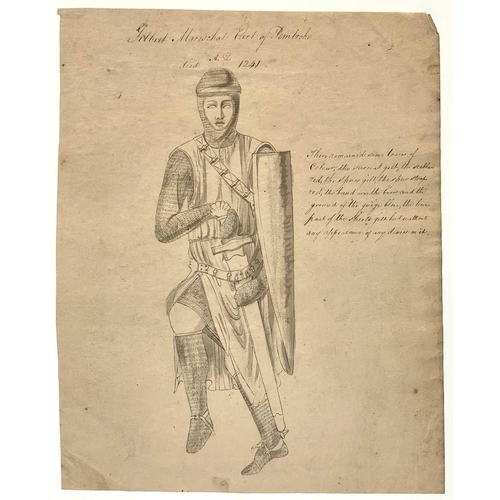 Gilbert Mareschal Earl of Pembroke
died A.D. 1241
There remained some traces of
Colour, the surcoat gilt, the scabbard
red, the spurs gilt, the spur straps
red, the band on the brow and the
ground of the guige blue, the bare
part of the shield gilt but without
any appearance of any device on it.